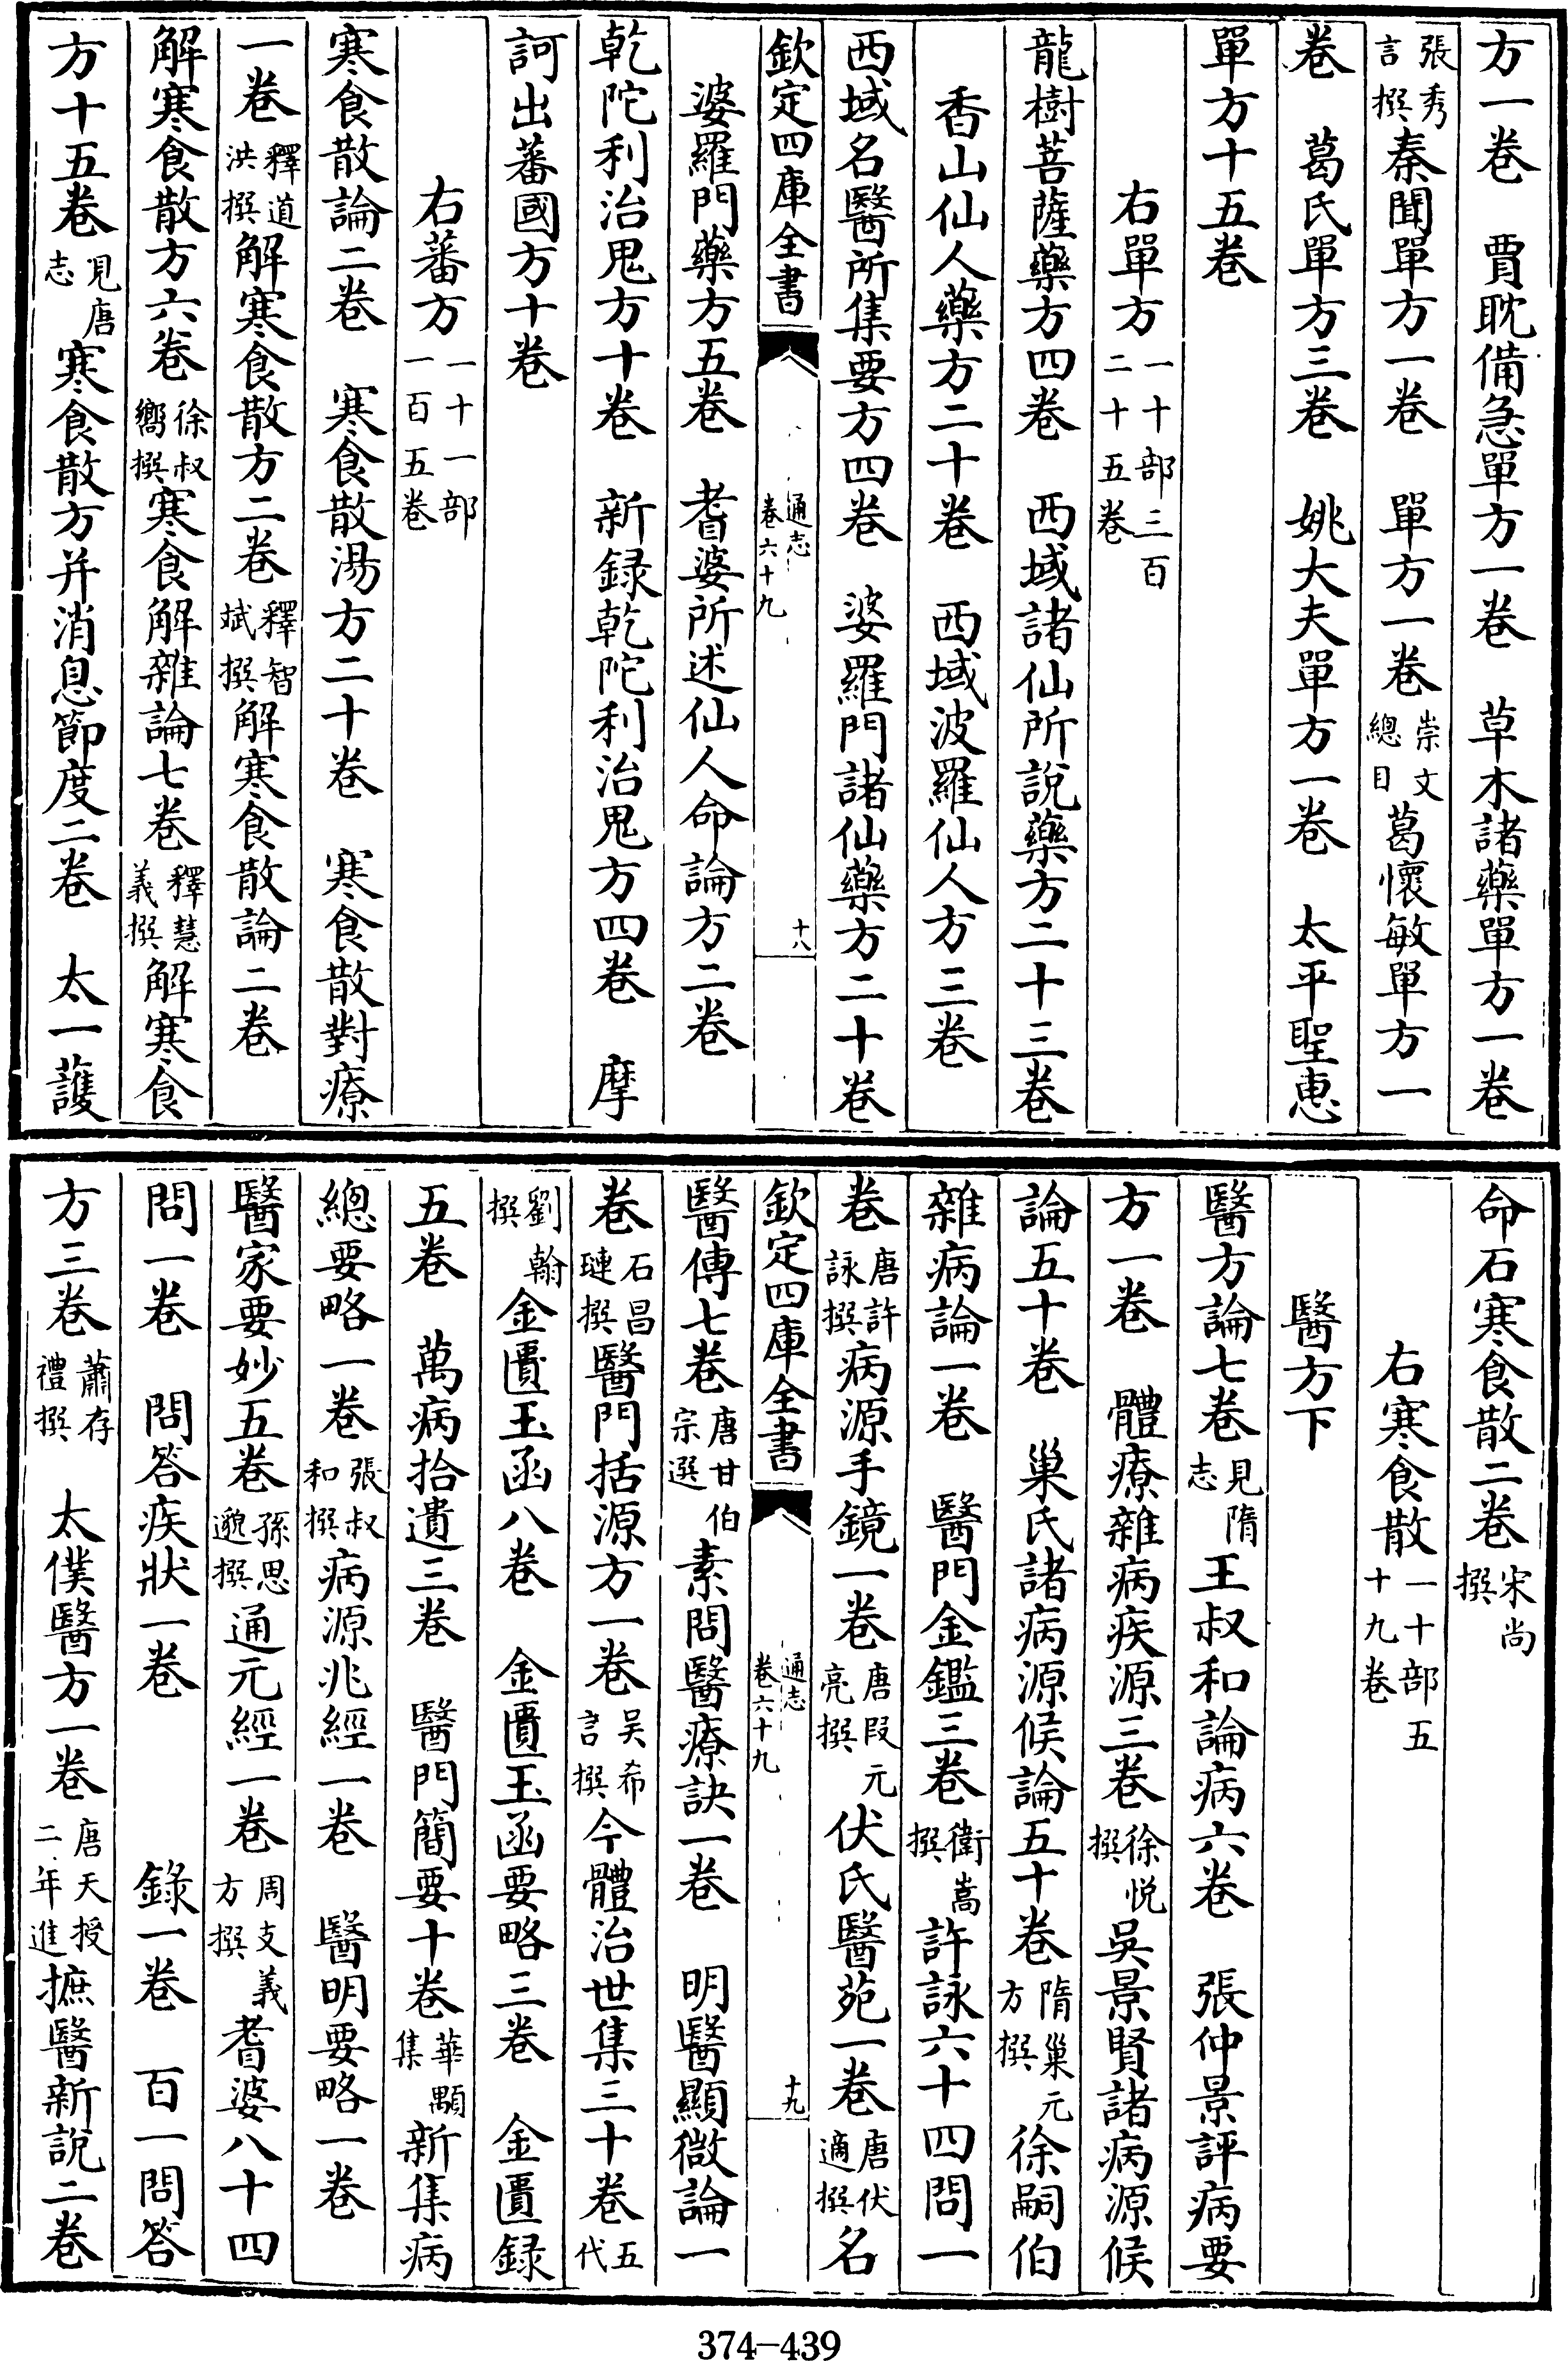 方一卷　賈耽備急單方一卷　草木諸藥單方一卷
張秀言撰秦聞單方一卷　單方一卷崇文總目葛懷敏單方一
卷　葛氏單方三卷　姚大夫單方一卷　太平聖惠
單方十五卷
右單方一十部三百二十五卷
龍樹菩薩藥方四卷　西域諸仙所說藥方二十三卷
香山仙人藥方二十卷　西域波羅仙人方三卷
西域名醫所集要方四卷　婆羅門諸仙藥方二十卷
欽定四庫全書　通志卷六十九　十八
婆羅門藥方五卷　耆婆所述仙人命論方二卷
乾陀利治鬼方十卷　新録乾陀利治鬼方四卷　摩
訶出蕃國方十卷
右蕃方一十一部一百五卷
寒食散論二卷　寒食散湯方二十卷　寒食散對療
一卷釋道洪撰解寒食散方二卷釋智斌撰解寒食散論二卷
解寒食散方六卷徐叔嚮撰寒食解雜論七卷釋慧義撰解寒食
方十五卷見唐志寒食散方并消息節度二卷　太一護
命石寒食散二卷宋尚撰
右寒食散一十部五十九卷
醫方下
醫方論七卷見隋志王叔和論病六卷　張仲景評病要
方一卷　體療雜病疾源三卷徐悅撰吳景賢諸病源候
論五十卷　巢氏諸病源候論五十卷隋巢元方撰徐嗣伯
雜病論一卷　醫門金鑑三卷衛嵩撰許詠六十四問一
卷唐許詠撰病源手鏡一卷唐段元亮撰伏氏醫苑一卷唐伏適撰名
欽定四庫全書　通志卷六十九　十九
醫傳七卷唐甘伯宗選素問醫療訣一卷　明醫顯微論一
卷石昌璉撰醫門括源方一卷吴希言撰今體治世集三十卷五代
劉翰撰金匱玉函八卷　金匱玉函要略三卷　金匱録
五卷　萬病拾遺三卷　醫門簡要十卷華顒集新集病
總要略一卷張叔和撰病源兆經一卷　醫明要略一卷
醫家要妙五卷孫思邈撰通元經一卷周支義方撰耆婆八十四
問一卷　問答疾狀一卷　錄一卷　百一問答
方三卷蕭存禮撰　太僕醫方一卷唐天授二年進摭醫新說二卷
374-439